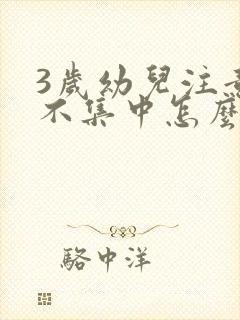 3歲幼兒注意
不集中怎麼
駱中洋